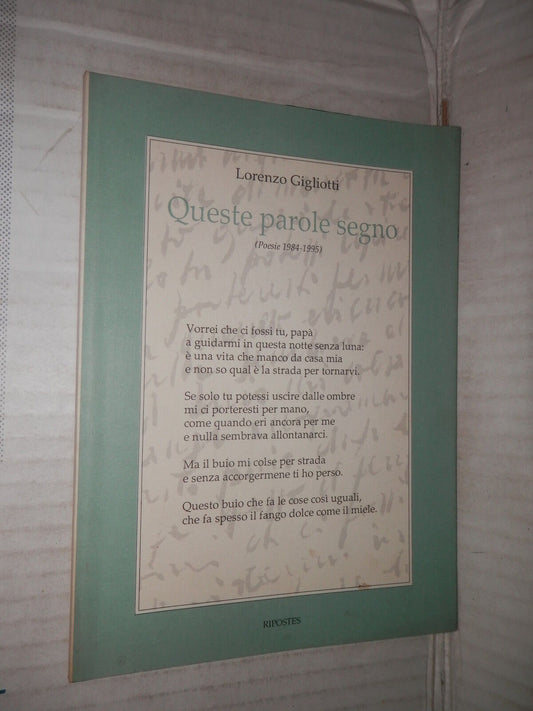 Lorenzo Gigliotti
Queste parole segno
(Poesie 1984-1995)
Vorrei che ci fossi tu, papà
a guidarmi in questa notte senza luna:
è una vita che manco da casa mia
e non so qual è la strada per tornarvi.
Se solo tu potessi uscire dalle ombre
mi ci porteresti per mano,
come quando eri ancora per me
e nulla sembrava allontanarci.
Ma il buio mi colse per strada
e senza accorgermene ti ho perso.
Questo buio che fa le cose così uguali,
che fa spesso il fango dolce come il miele.
RIPOSTES